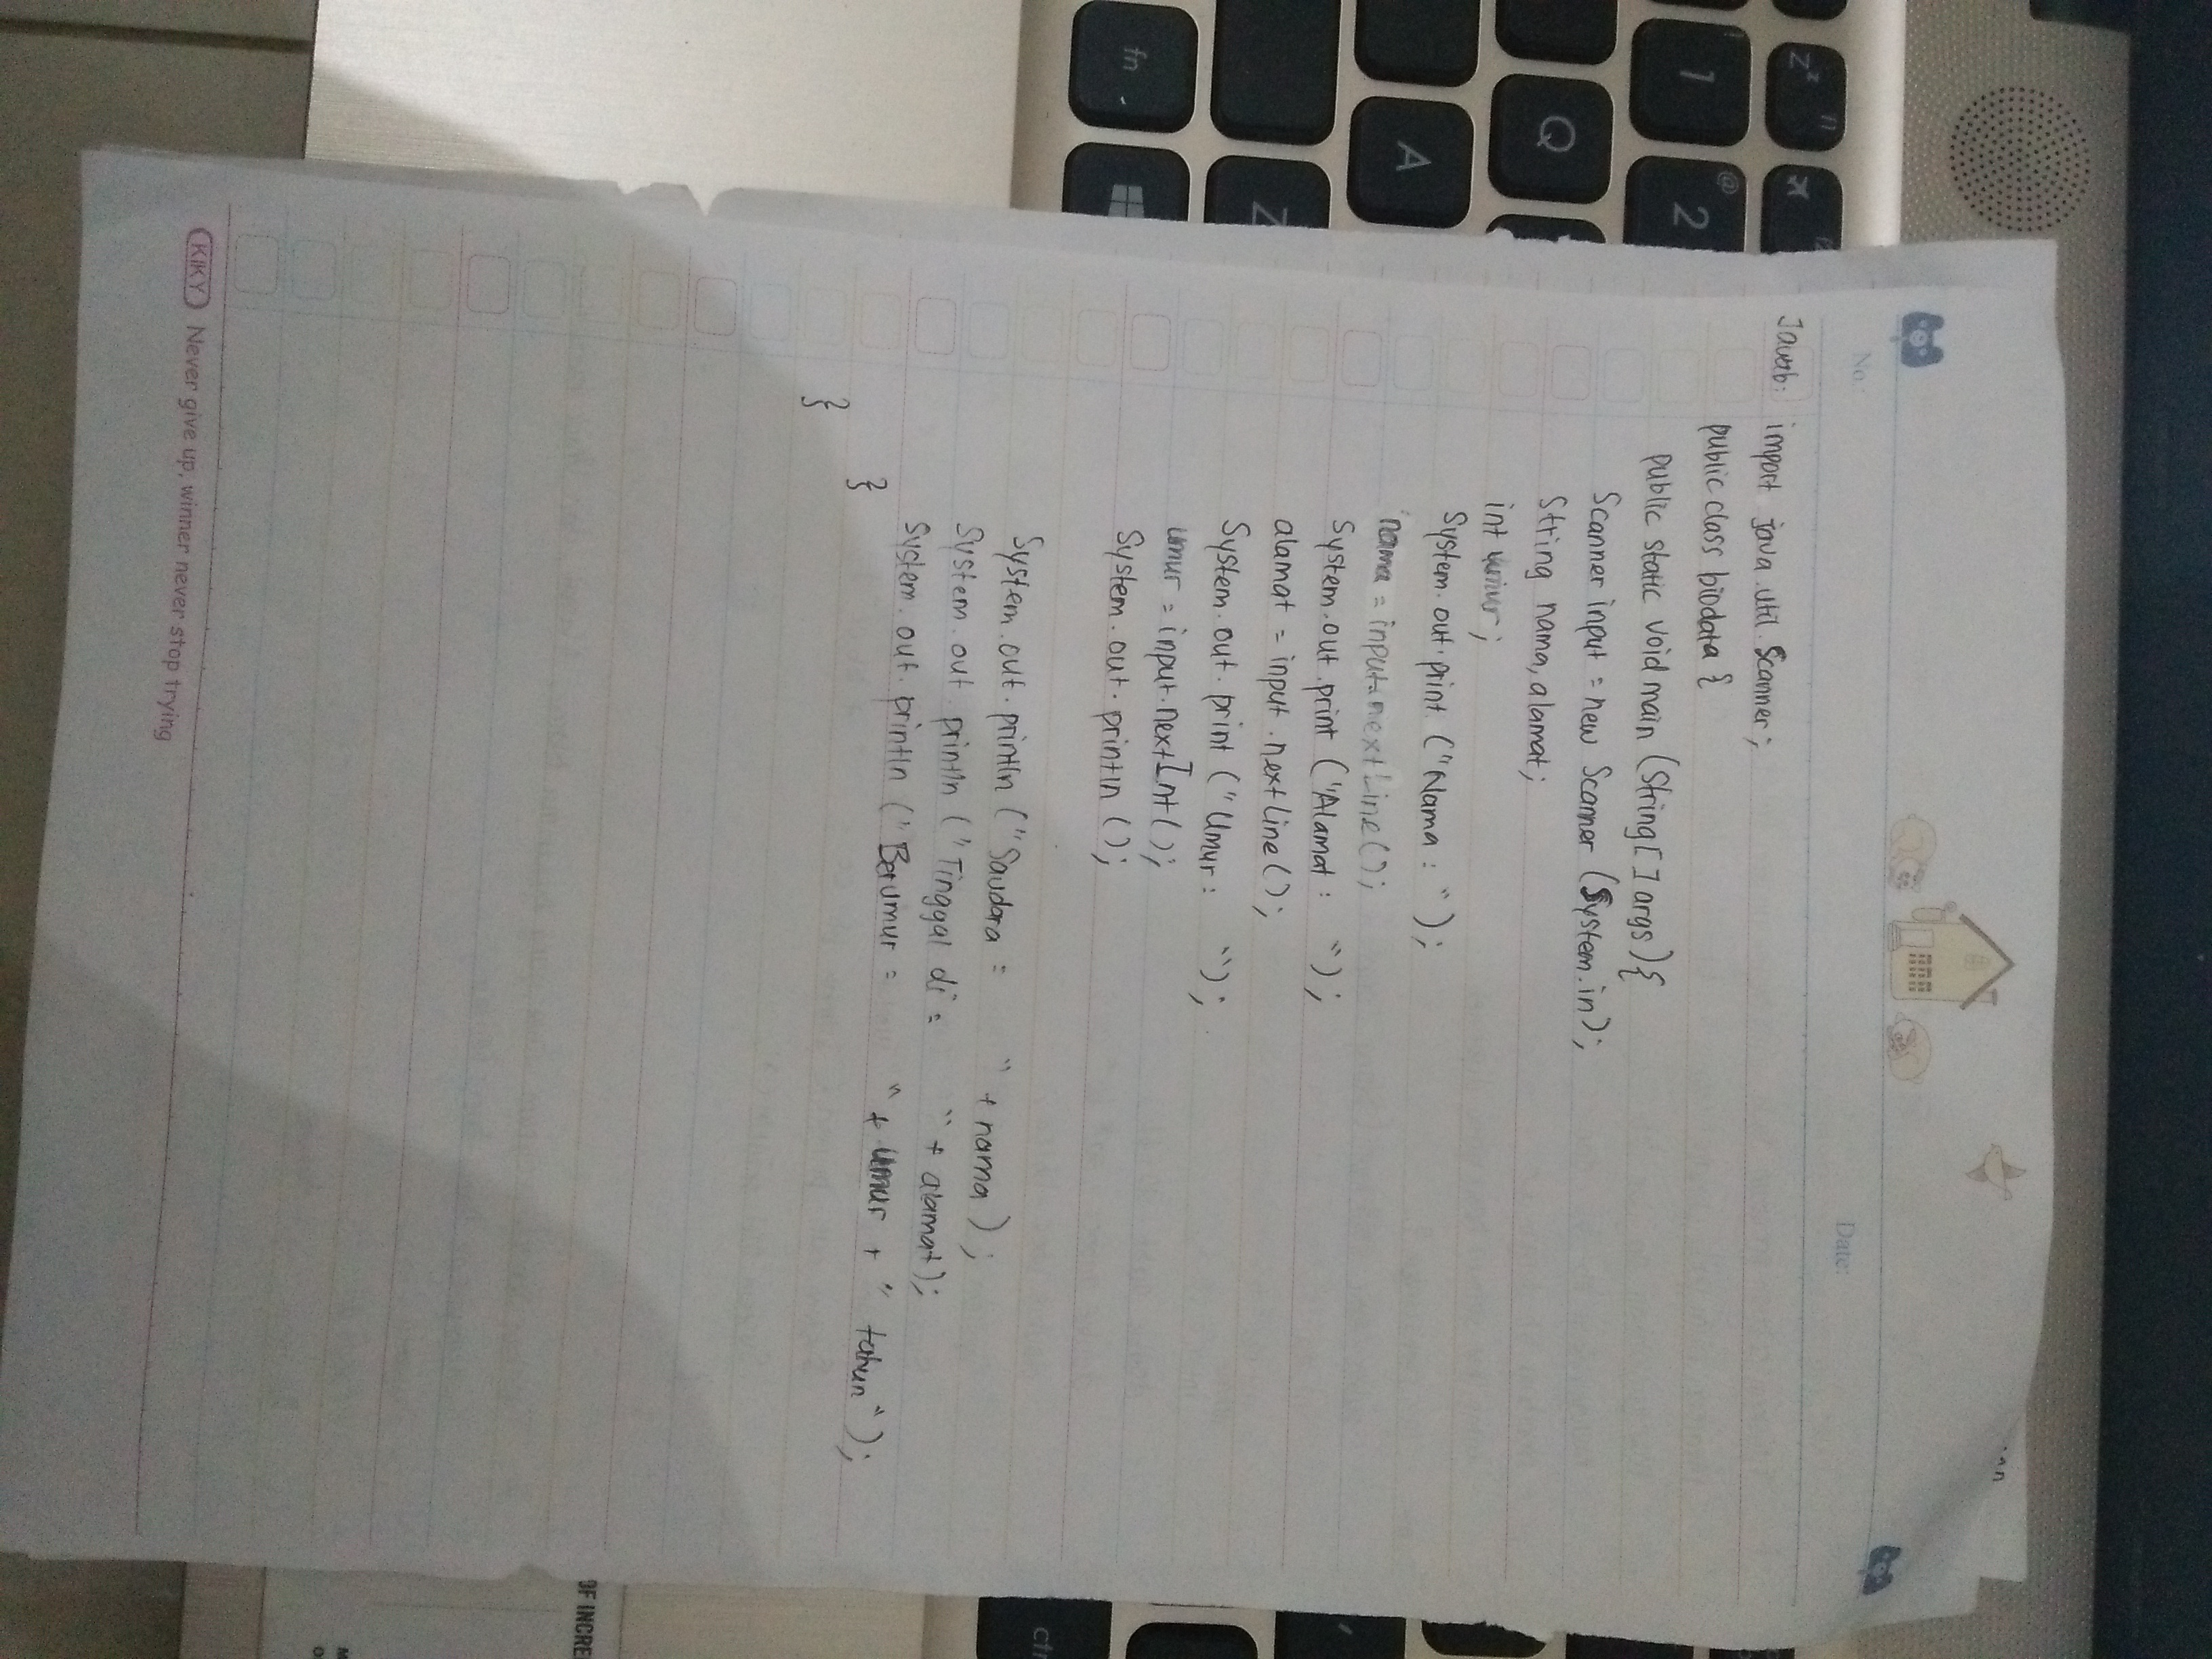 No.:
Date:
Jawab: import java.util.Scanner;
public class biodata {
public static void main (String[] args){
Scanner input = new Scanner (System.in);
String nama, alamat;
int umur;
System.out.print ("Nama : ");
nama = input.nextLine();
System.out.print ("Alamat : ");
alamat = input.nextLine();
System.out.print ("Umur : ");
umur = input.nextInt();
System.out.println ();
System.out.println ("Saudara = " + nama);
System.out println ("Tinggal di = " + alamat);
System.out.println ("Berumur = " + umur + " tahun");
}
}
KIKY Never give up, winner never stop trying
1
2
Q
A
Z
fn
OF INCRE